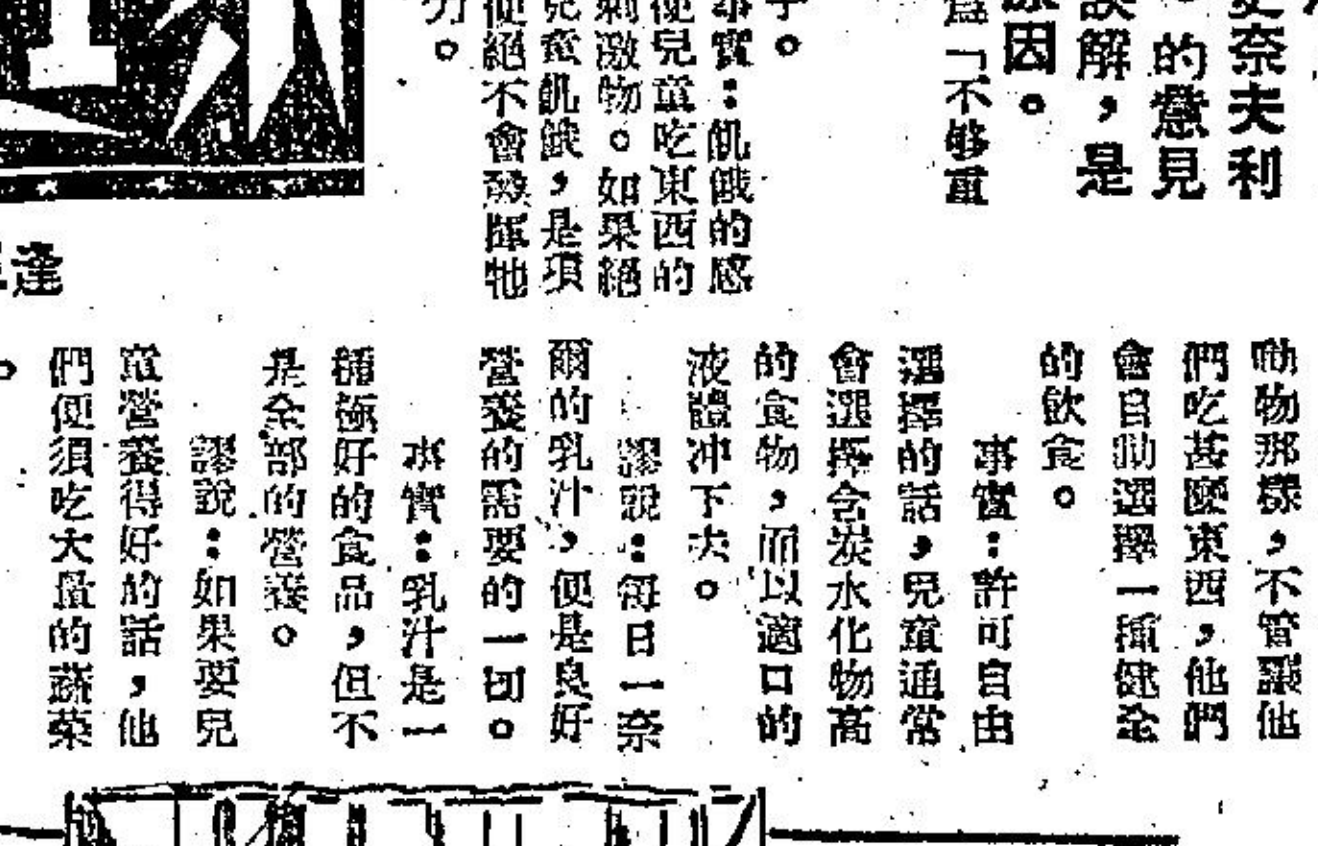 史奈夫利
的意見
誤解，是
原因。
爲「不够重
事實：飢餓的感
便兒童吃東西的
刺激物。如果絕
兒童飢餓，是項
便絕不會發揮牠
力。
逢
動物那樣，不管讓他
們吃甚麼東西，他們
會自助選擇一種健全
的飲食。
事實：許可自由
選擇的話，兒童通常
會選擇含炭水化物高
的食物，而以適口的
液體冲下去。
謬說：每日一奈
爾的乳汁，便是良好
營養的需要的一切。
事實：乳汁是一
種極好的食品，但不
是全部的營養。
謬說：如果要兒
童營養得好的話，他
們便須吃大量的蔬菜
。